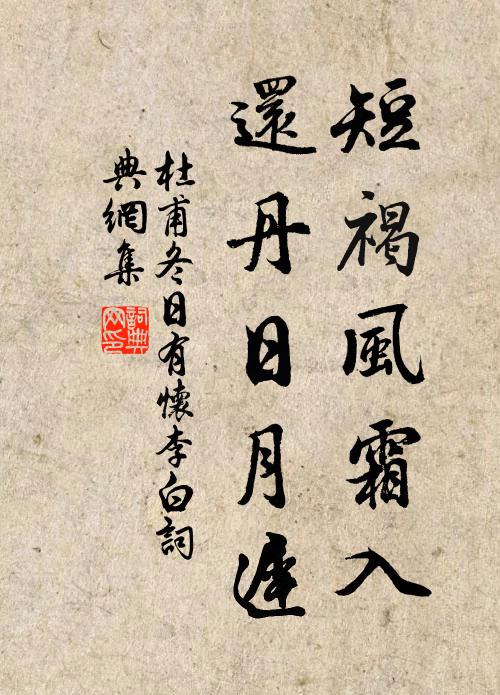 短褐風霜入
還丹日月遲
杜甫冬日有懷李白詞
典網集
詞典
网印